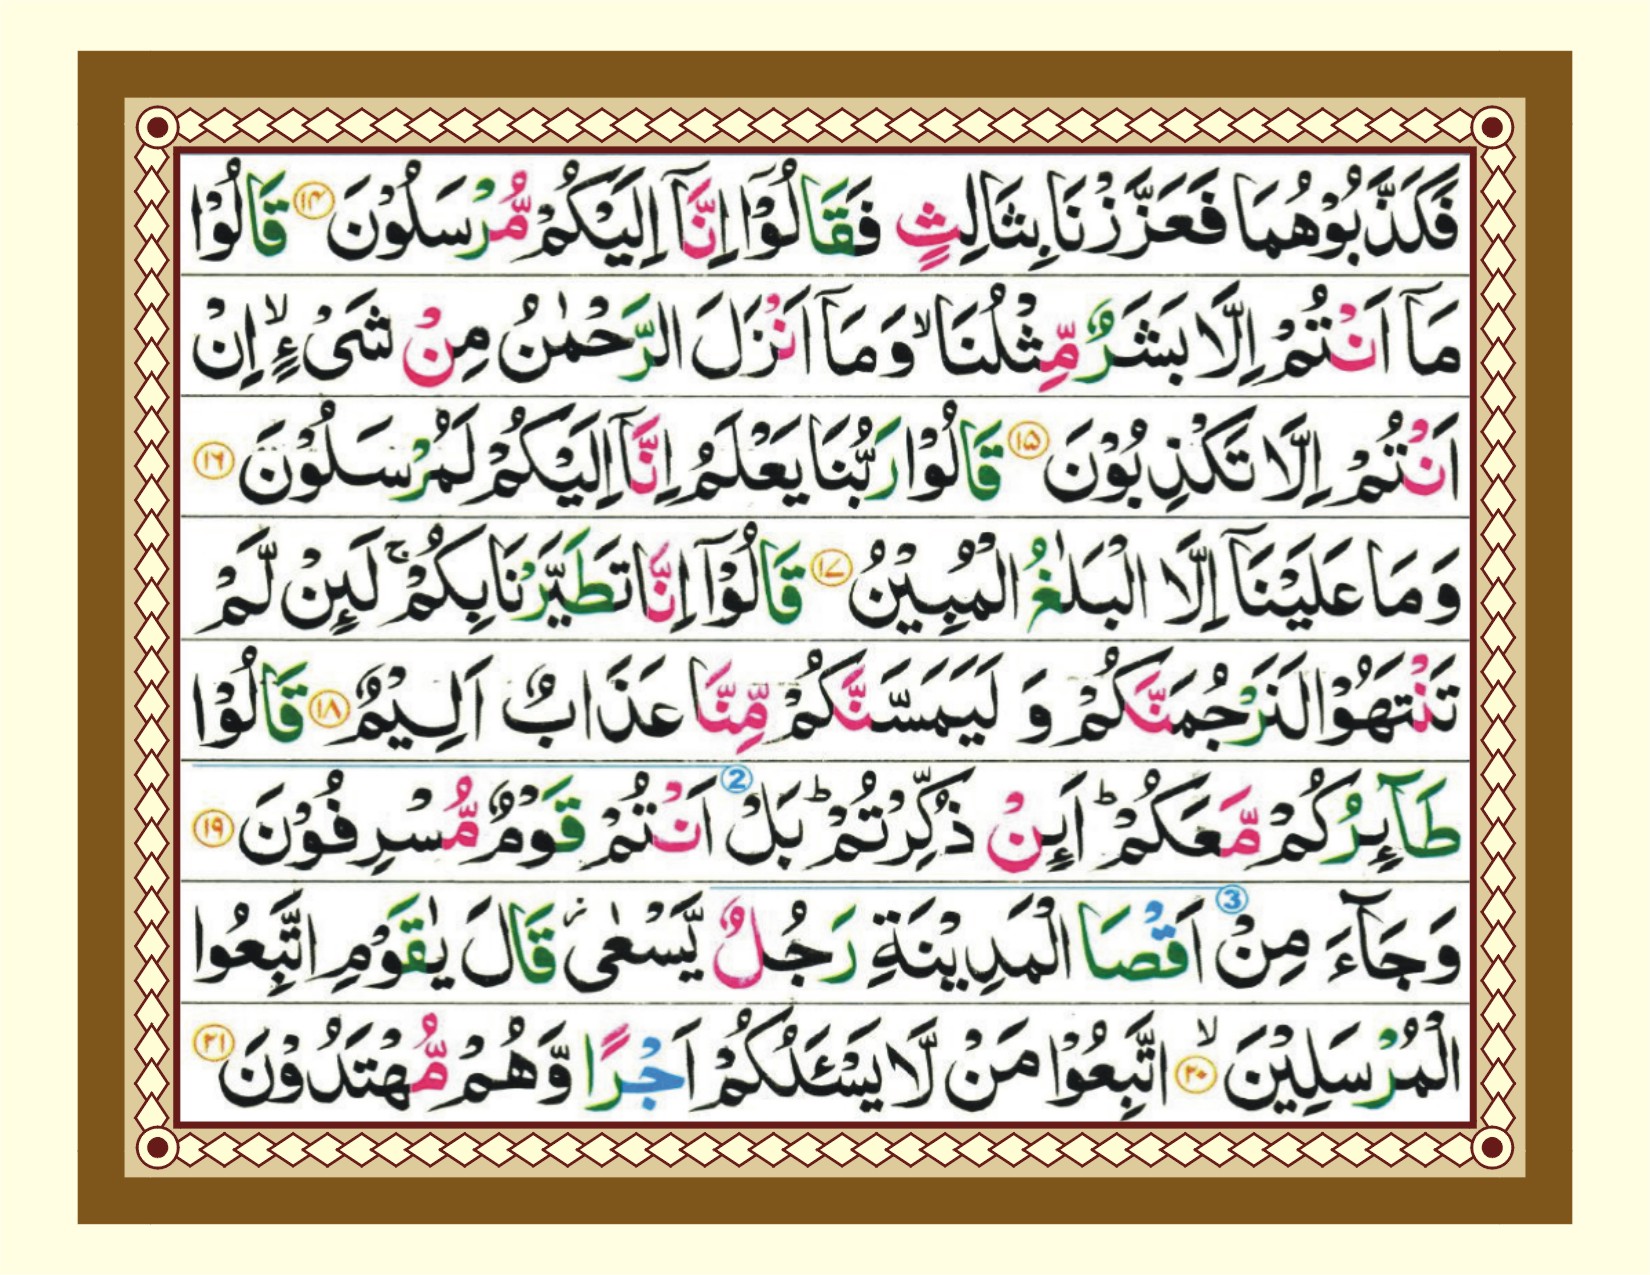 فَكَذَّبُوْهُمَا فَعَزَّزْنَا بِثَالِثٍ فَقَالُوْۤا اِنَّاۤ اِلَيْكُمْ مُّرْسَلُوْنَ ۱۴ قَالُوْا
مَاۤ اَنْتُمْ اِلَّا بَشَرٌ مِّثْلُنَا ۙ وَمَاۤ اَنْزَلَ الرَّحْمٰنُ مِنْ شَیْءٍ ۙ اِنْ
اَنْتُمْ اِلَّا تَكْذِبُوْنَ ۱۵ قَالُوْا رَبُّنَا يَعْلَمُ اِنَّاۤ اِلَيْكُمْ لَمُرْسَلُوْنَ ۱۶
وَمَا عَلَيْنَاۤ اِلَّا الْبَلٰغُ الْمُبِيْنُ ۱۷ قَالُوْۤا اِنَّا تَطَيَّرْنَا بِكُمْ ۚ لَئِنْ لَّمْ
تَنْتَهُوْا لَنَرْجُمَنَّكُمْ وَ لَيَمَسَّنَّكُمْ مِّنَّا عَذَابٌ اَلِيْمٌ ۱۸ قَالُوْا
طَآئِرُكُمْ مَّعَكُمْ ؕ اَئِنْ ذُكِّرْتُمْ ؕ بَلْ 2 اَنْتُمْ قَوْمٌ مُّسْرِفُوْنَ ۱۹
وَجَآءَ مِنْ 3 اَقْصَا الْمَدِيْنَةِ رَجُلٌ يَّسْعٰى ؗ قَالَ يٰقَوْمِ اتَّبِعُوا
الْمُرْسَلِيْنَ ۙ ۲۰ اتَّبِعُوْا مَنْ لَّا يَسْـَٔلُكُمْ اَجْرًا وَّهُمْ مُّهْتَدُوْنَ ۲۱